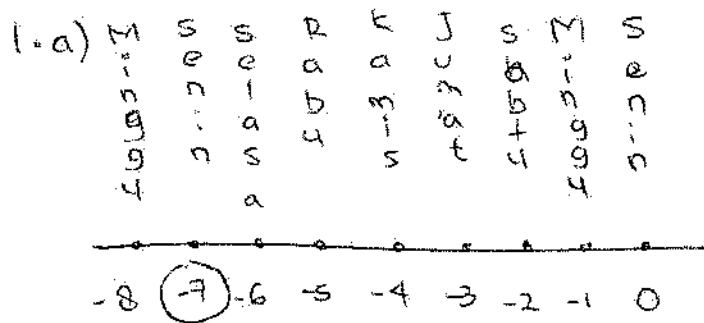 1.a) Minggu Senin Selasa Rabu Kamis Jumat Sabtu Minggu Senin
-8 -7 -6 -5 -4 -3 -2 -1 0